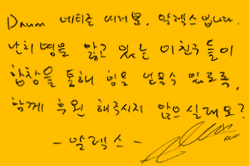 Daum 네티즌 여러분, 알렉스입니다.
난치병을 앓고 있는 이친구들이
합창을 통해 힘을 얻을수 있도록,
함께 후원 해주시지 않으실래요?
- 알렉스 -